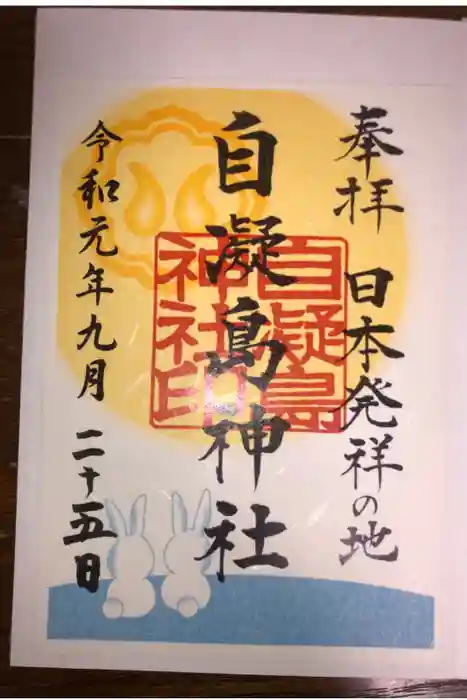 奉拝 日本発祥の地
自凝島神社
自凝島
神社印
令和元年九月 二十五日